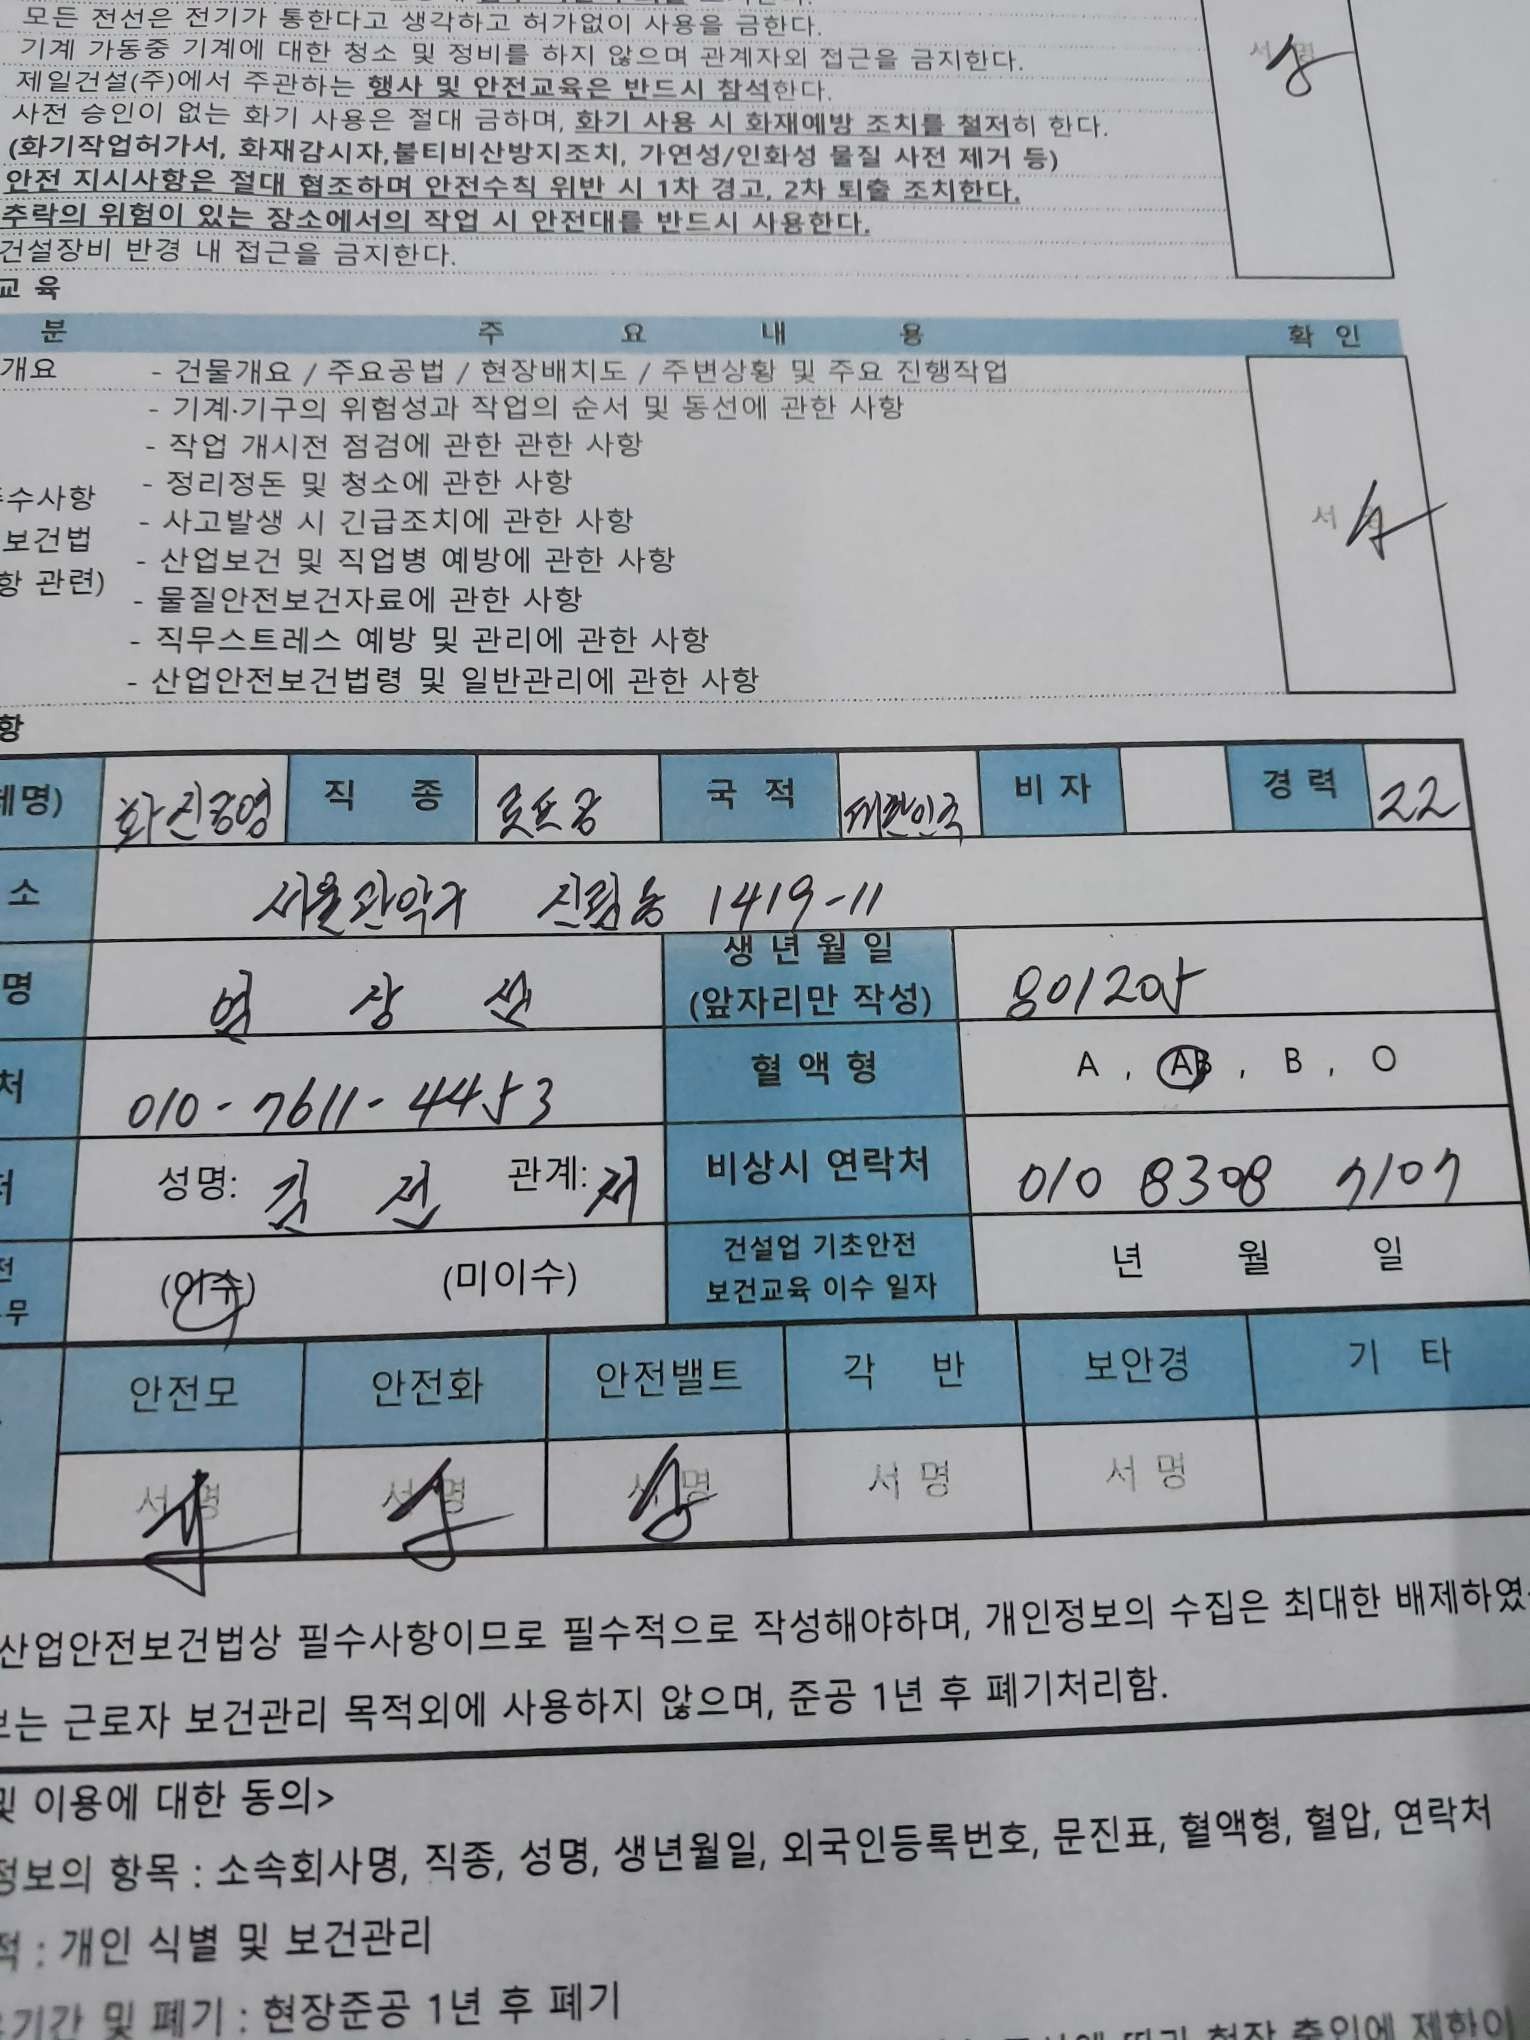 모든 전선은 전기가 통한다고 생각하고 허가없이 사용을 금한다.
기계 가동중 기계에 대한 청소 및 정비를 하지 않으며 관계자외 접근을 금지한다.
제일건설(주)에서 주관하는 행사 및 안전교육은 반드시 참석한다.
사전 승인이 없는 화기 사용은 절대 금하며, 화기 사용 시 화재예방 조치를 철저히 한다.
(화기작업허가서, 화재감시자,불티비산방지조치, 가연성/인화성 물질 사전 제거 등)
안전 지시사항은 절대 협조하며 안전수칙 위반 시 1차 경고, 2차 퇴출 조치한다.
추락의 위험이 있는 장소에서의 작업 시 안전대를 반드시 사용한다.
건설장비 반경 내 접근을 금지한다.
서명
교 육
분 주 요 내 용 확 인
개요 - 건물개요 / 주요공법 / 현장배치도 / 주변상황 및 주요 진행작업
- 기계·기구의 위험성과 작업의 순서 및 동선에 관한 사항
- 작업 개시전 점검에 관한 관한 사항
- 정리정돈 및 청소에 관한 사항
수사항 - 사고발생 시 긴급조치에 관한 사항
보건법 - 산업보건 및 직업병 예방에 관한 사항
항 관련) - 물질안전보건자료에 관한 사항
- 직무스트레스 예방 및 관리에 관한 사항
- 산업안전보건법령 및 일반관리에 관한 사항
서명
항
체명) 화진공영 직 종 국 적 대한민국 비 자 경 력 22
소 서울관악구 신림동 1419-11
명 생 년 월 일
(앞자리만 작성) 801205
처 010-7611-4453 혈 액 형 A , AB , B , O
처 성명: 김 전 관계: 처 비상시 연락처 010 8308 7107
전
무 (이수) (미이수) 건설업 기초안전
보건교육 이수 일자 년 월 일
안전모 안전화 안전밸트 각 반 보안경 기 타
서명 서명 서명 서명 서명
산업안전보건법상 필수사항이므로 필수적으로 작성해야하며, 개인정보의 수집은 최대한 배제하였
보는 근로자 보건관리 목적외에 사용하지 않으며, 준공 1년 후 폐기처리함.
및 이용에 대한 동의>
정보의 항목 : 소속회사명, 직종, 성명, 생년월일, 외국인등록번호, 문진표, 혈액형, 혈압, 연락처
적 : 개인 식별 및 보건관리
기간 및 폐기 : 현장준공 1년 후 폐기
따라 현장 출입에 제한이